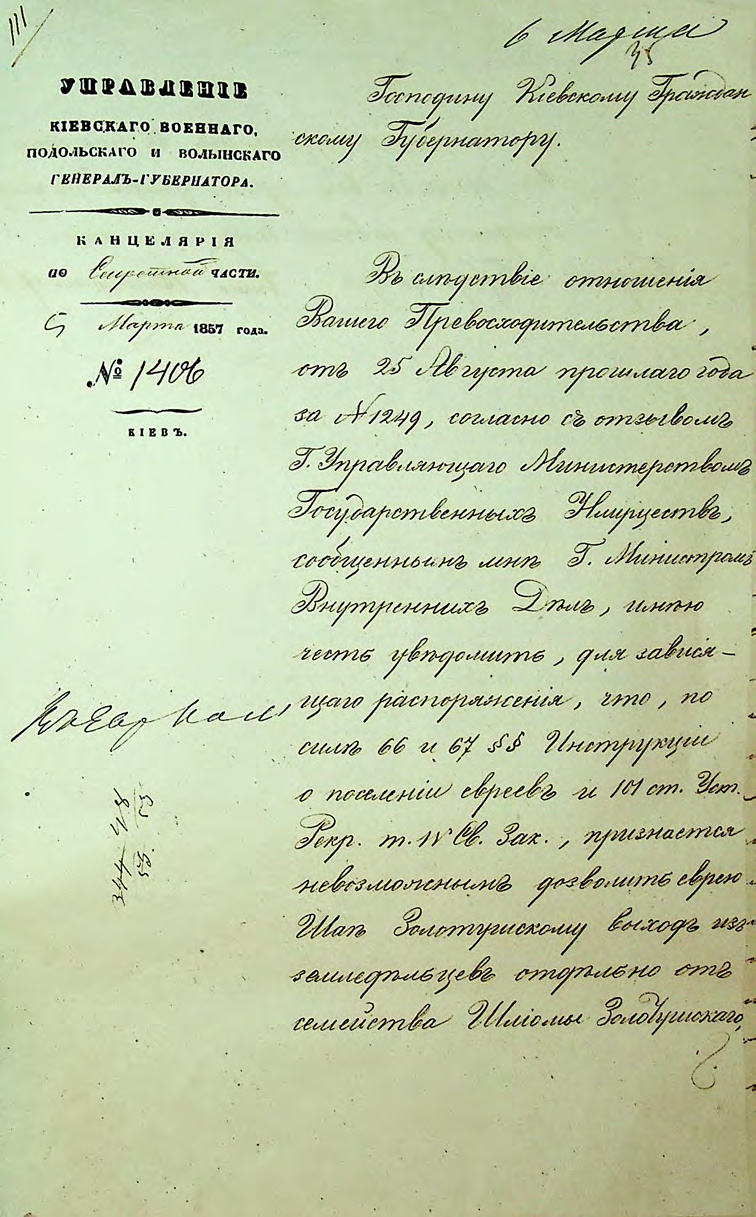 111
6 Марта
УПРАВЛЕНІЕ
КІЕВСКАГО ВОЕННАГО,
ПОДОЛЬСКАГО И ВОЛЫНСКАГО
ГЕНЕРАЛЪ-ГУБЕРНАТОРА.
КАНЦЕЛЯРІЯ
по Секретной ЧАСТИ.
5 Марта 1857 года.
№ 1406
КІЕВЪ.
Господину Кіевскому Граждан
скому Губернатору.
Въ слѣдствіе отношенія
Вашего Превосходительства,
отъ 25 Августа прошлаго года
за № 1249, согласно съ отзывомъ
Г. Управляющаго Министерствомъ
Государственныхъ Имуществъ,
сообщеннымъ мнѣ Г. Министромъ
Внутреннихъ Дѣлъ, имѣю
честь увѣдомить, для завися-
щаго распоряженія, что, по
силѣ 66 и 67 §§ Инструкціи
о поселеніи евреевъ и 101 ст. Уст.
Рекр. т. IV Св. Зак., признается
невозможнымъ дозволить еврею
Шаѣ Золотушскому выходъ изъ
земледѣльцевъ отдѣльно отъ
семейства Шліомы Золотушскаго,
344 48
53. 53